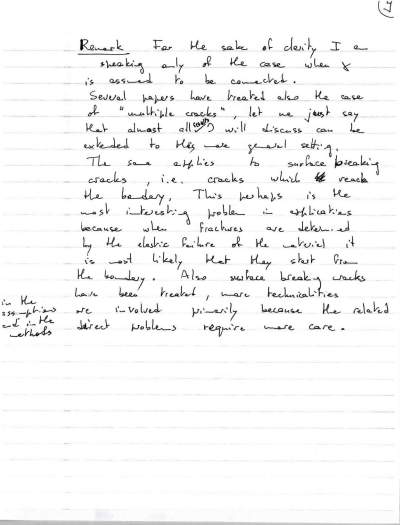 Remark For the sake of clarity I am
speaking only of the case when γ
is assumed to be connected.
Several papers have treated also the case
of "multiple cracks", let me just say
that almost all results I will discuss can be
extended to this more general setting.
The same applies to surface breaking
cracks, i.e. cracks which reach
the boundary, This perhaps is the
most interesting problem in applications
because when fractures are determined
by the elastic failure of the material it
is most likely that they start from
the boundary. Also surface breaking cracks
have been treated, more technicalities
in the assumptions and in the methods
are involved primarily because the related
direct problems require more care.